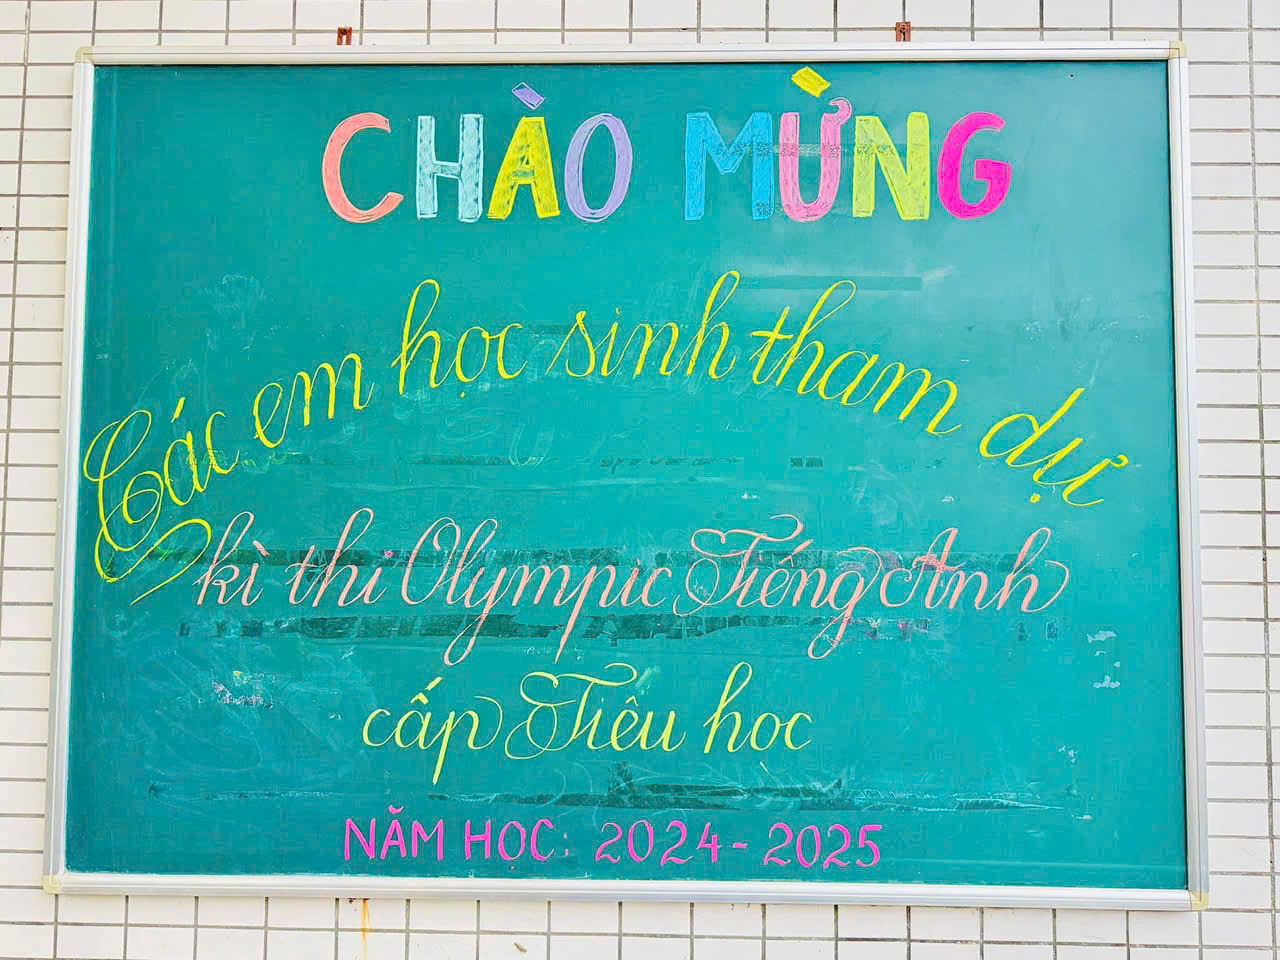 CHÀO MỪNG
Các em học sinh tham dự
kì thi Olympic Tiếng Anh
cấp Tiểu học
NĂM HỌC: 2024 - 2025